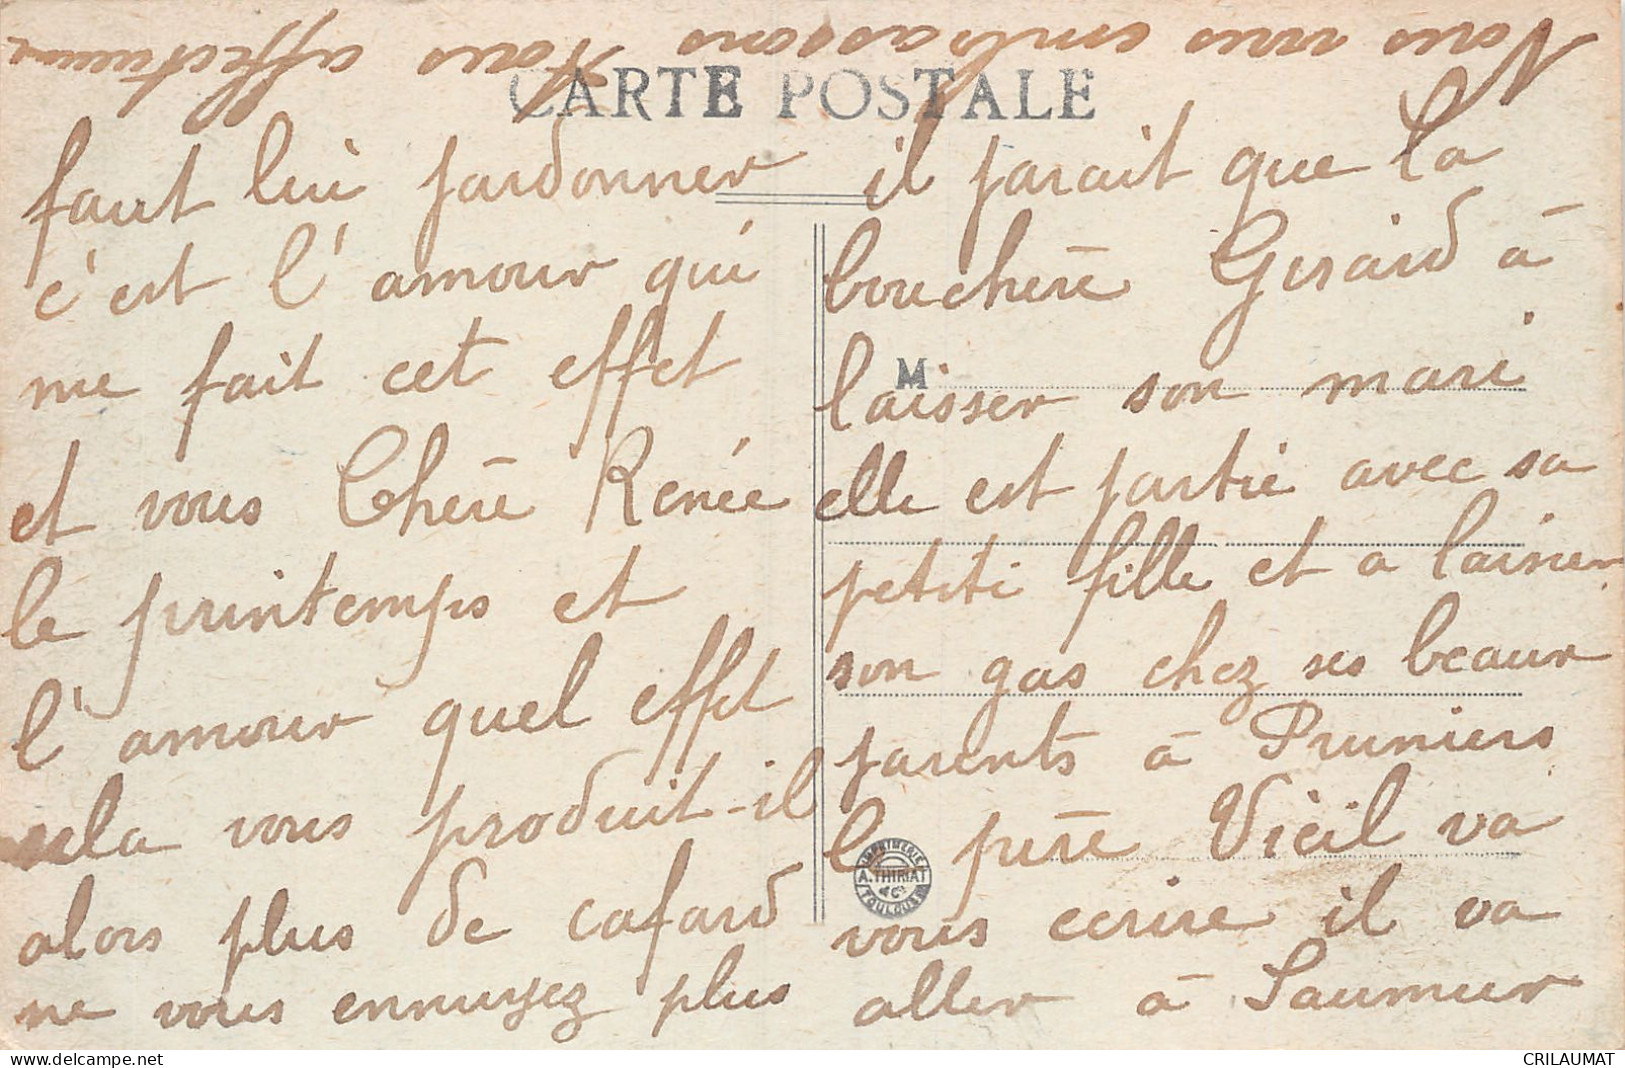 CARTE POSTALE
faut lui pardonner
c'est l'amour qui
me fait cet effet
et vous Chère Renée
le printemps et
l'amour quel effet
cela vous produit-il
alors plus de cafard
ne vous ennuyez plus
il parait que la
bouchère Girard à
laisser son mari
M
elle est partie avec sa
petite fille et a laisser
son gas chez ses beaux
parents à Pruniers
le père Vieil va
vous écrire il va
aller à Saumur
IMPRIMERIE
A. THIRIAT
TOULOUSE
Nous vous embrassons tous affectueuse
CRILAUMAT